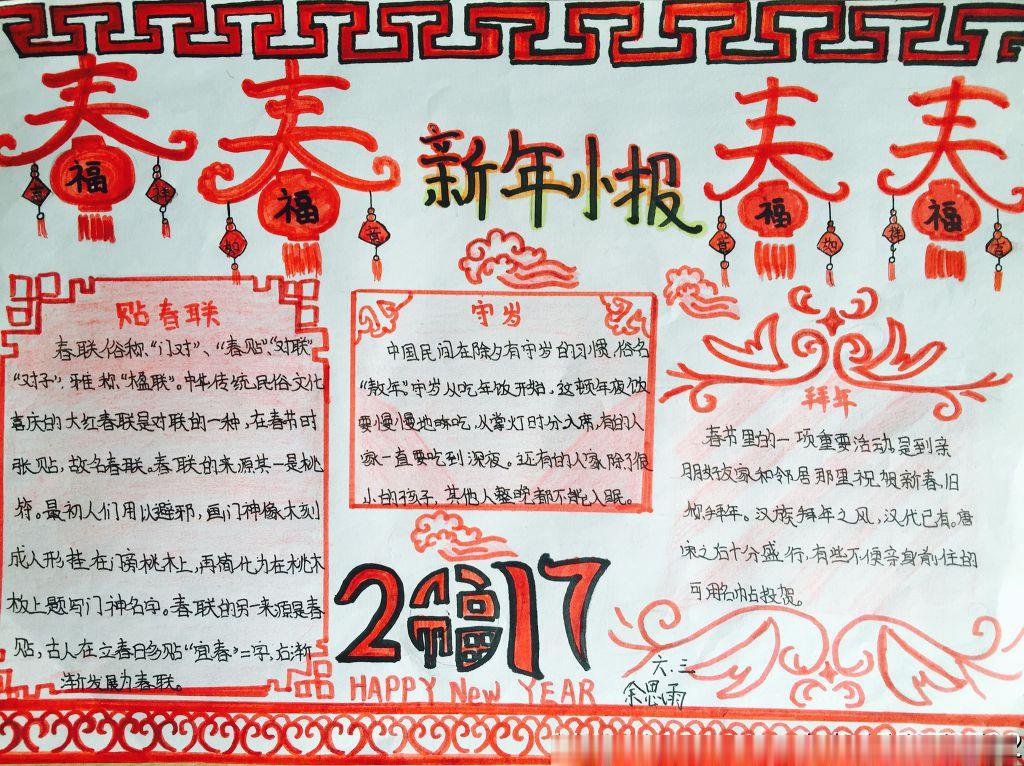 春 春 春 春
福 福 福 福
吉 祥 如 意 吉 如 祥 吉
新年小报
贴春联
春联,俗称“门对”、“春贴”、“对联”
“对子”,雅称“楹联”。中华传统民俗文化
喜庆的大红春联是对联的一种,在春节时
张贴,故名春联。春联的来源其一是桃
符。最初人们用以避邪,画门神像木刻
成人形挂在门旁桃木上,再简化为在桃木
板上题写门神名字。春联的另一来源是春
贴,古人在立春日多贴“宜春”二字,后渐
渐发展为春联。
守岁
中国民间在除夕有守岁的习惯,俗名
“熬年”。守岁从吃年饭开始,这顿年夜饭
要慢慢地吃,从掌灯时分入席,有的人
家一直要吃到深夜。还有的人家除了很
小的孩子,其他人整晚都不能入眠。
2福17
HAPPY New YEAR
拜年
春节里的一项重要活动是到亲
朋好友家和邻居那里祝贺新春,旧
称拜年。汉族拜年之风,汉代已有。唐
宋之后十分盛行,有些不便亲身前往的
可用名帖投贺。
六.三
余思雨